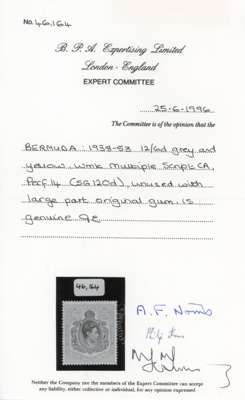 No. 46,164
B. P. A. Expertising Limited
London - England
EXPERT COMMITTEE
25-6-1996
The Committee is of the opinion that the
BERMUDA: 1938-53 12/6d grey and
yellow, wmk Multiple Script CA,
Perf.14 (SG120d), unused with
large part original gum, is
genuine
46,164
A. F. Norris
Neither the Company nor the members of the Expert Committee can accept
any liability, either collective or individual, for any opinion expressed.